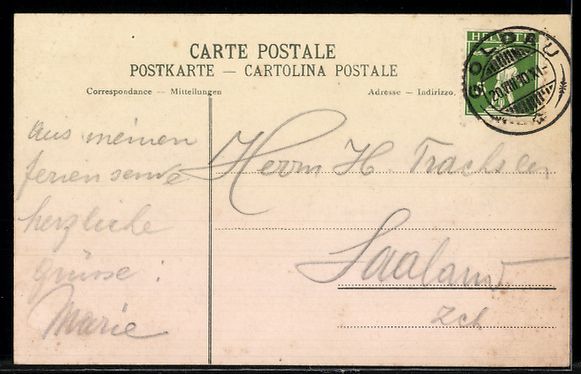 CARTE POSTALE
POSTKARTE — CARTOLINA POSTALE
Correspondance — Mitteilungen
Adresse — Indirizzo.
HELVETIA
GOLDAU
20.VIII.10.XI-
aus meinen
ferien sende
herzliche
Grüsse:
Marie
Herrn H. Trachsler
Saaland
Zch